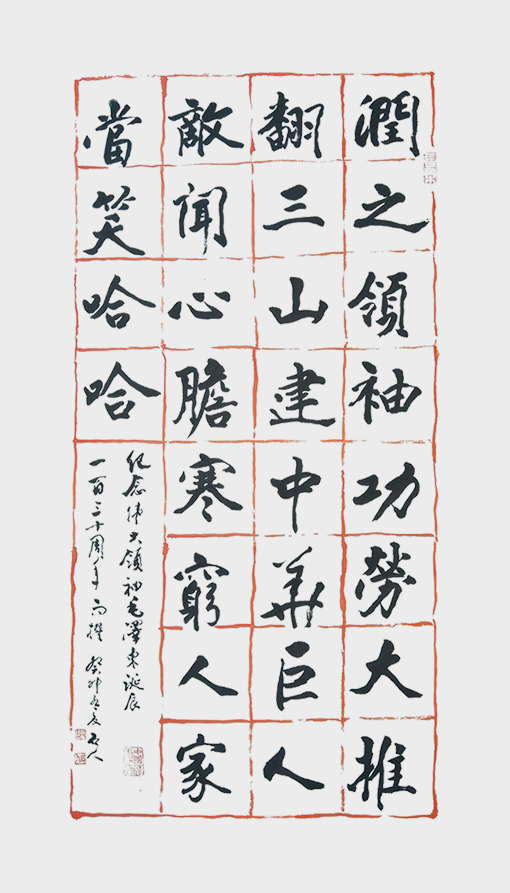 潤之領袖功勞大推
翻三山建中華巨人
敵聞心膽寒窮人家
當笑哈哈
紀念偉大領袖毛澤東誕辰
一百三十周年而撰 癸卯